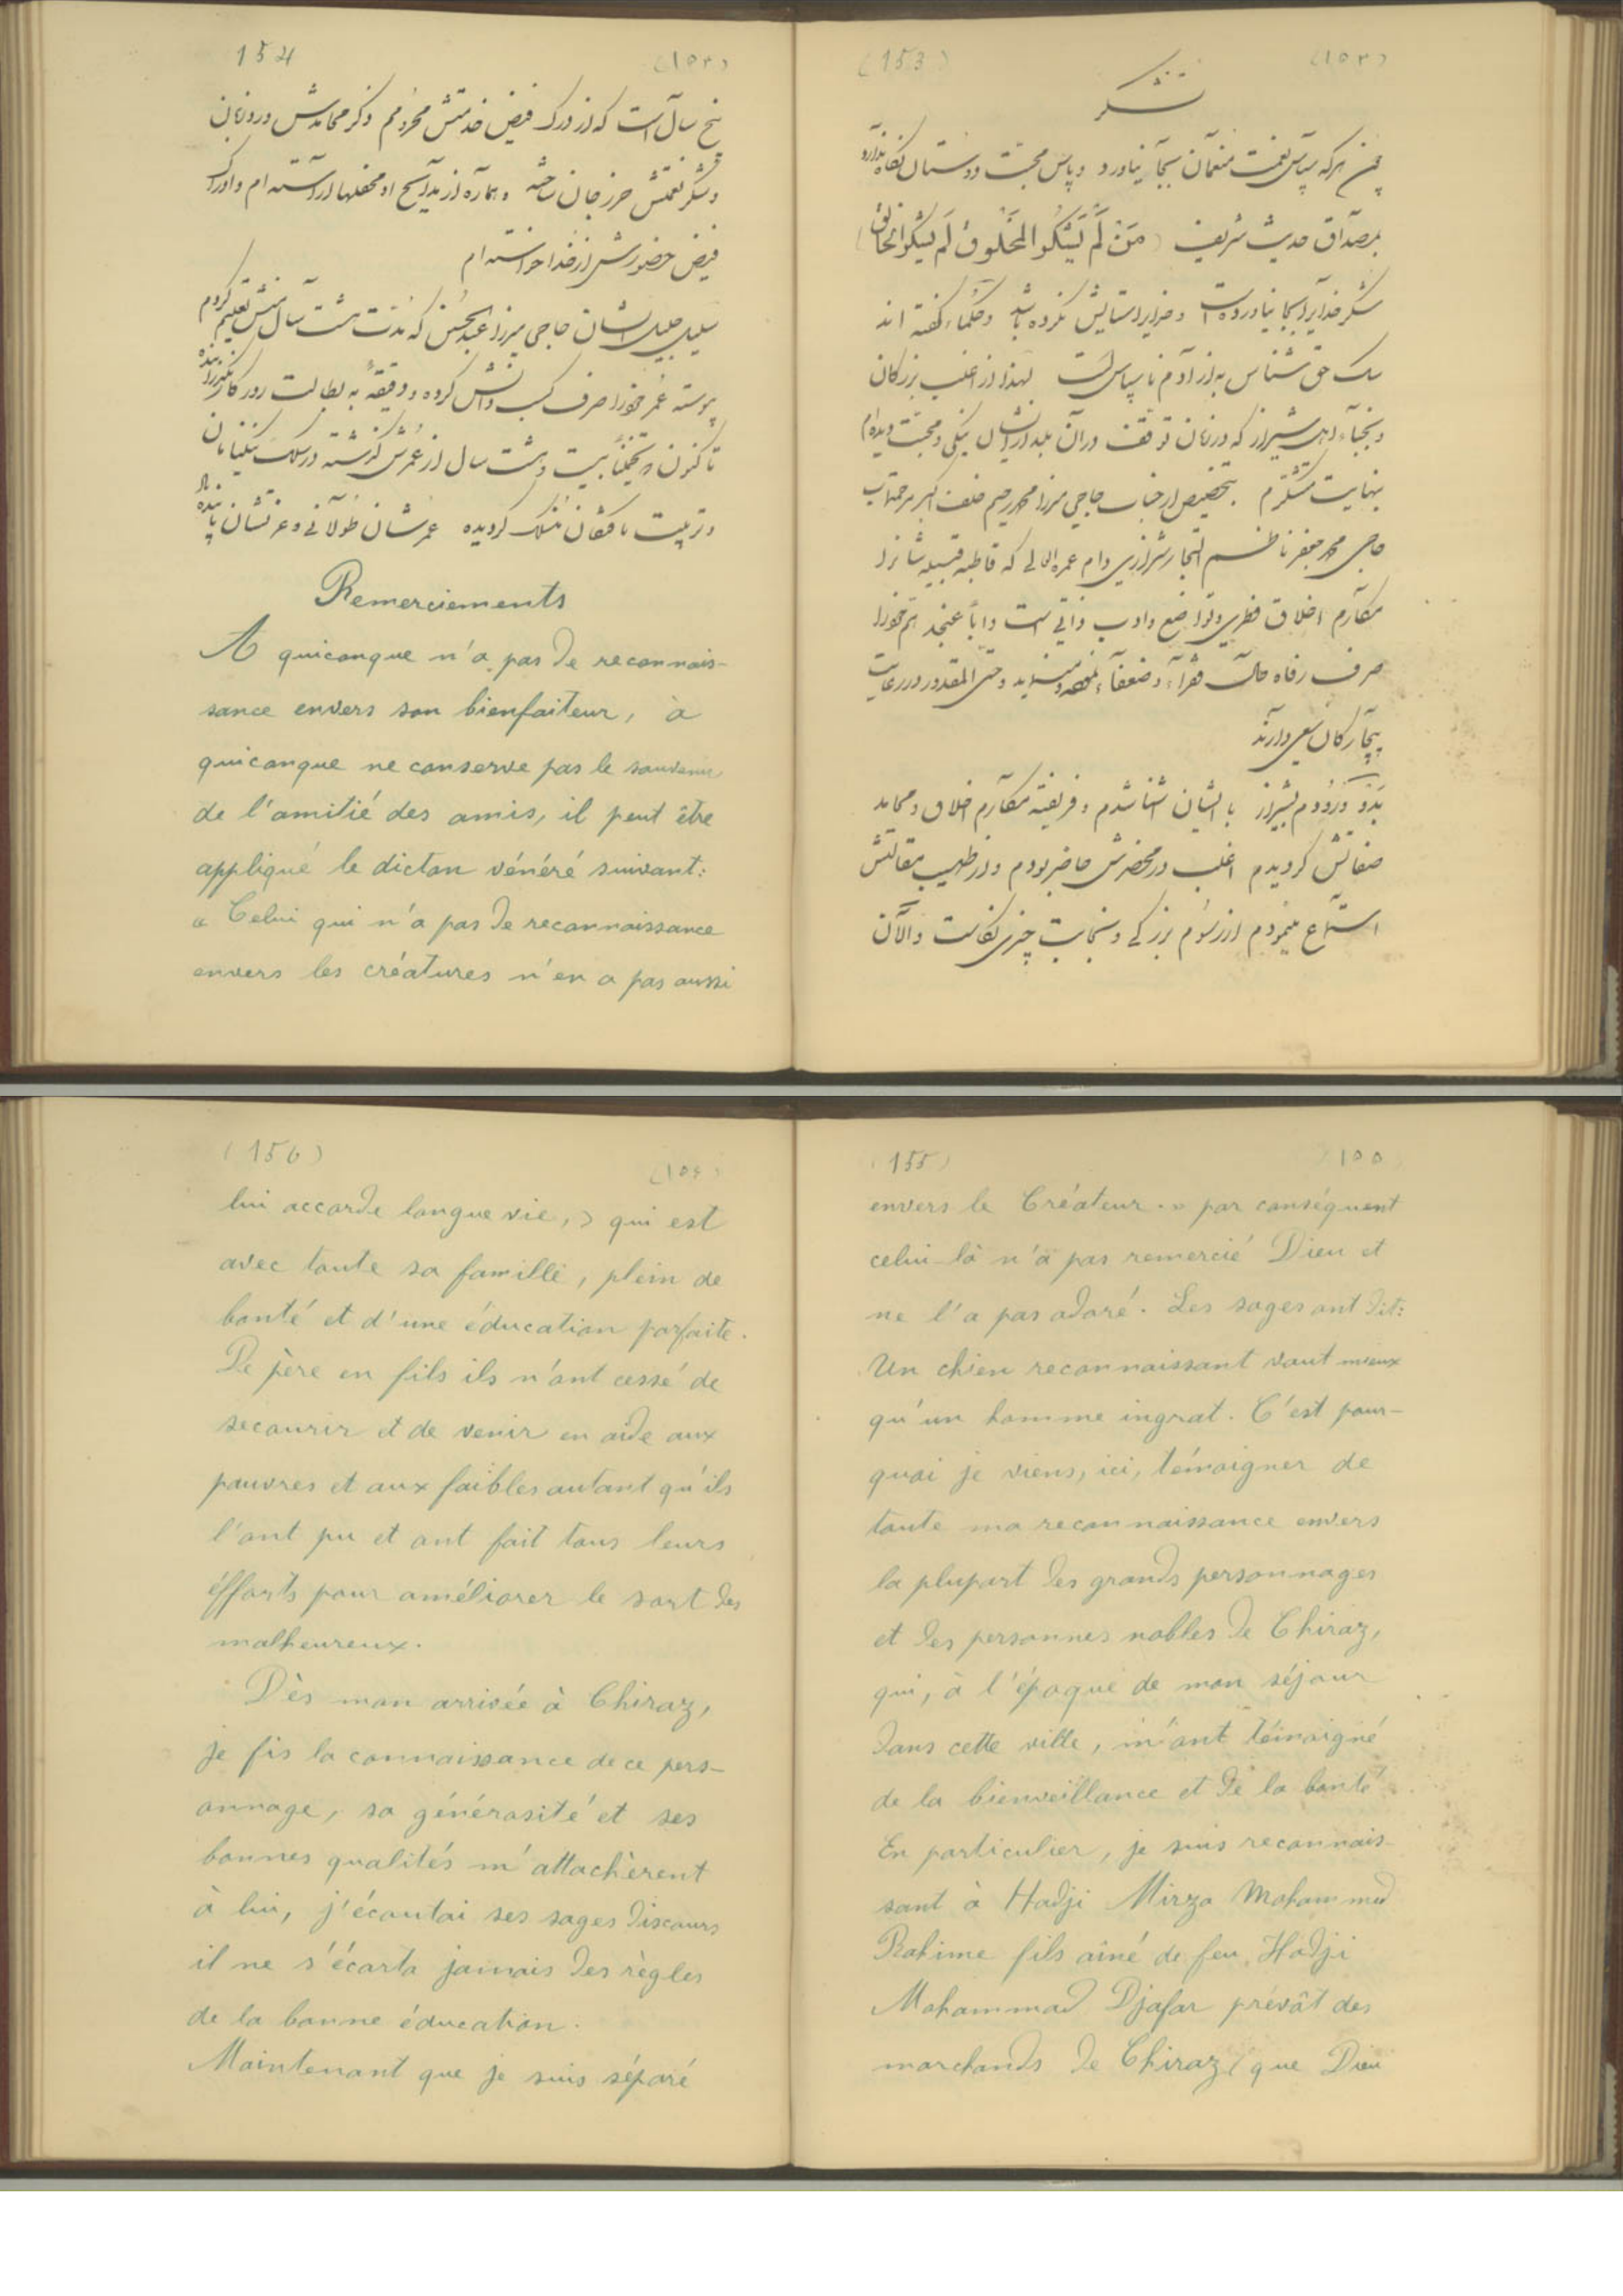 (153) (۱۵۳)
تشکر
چون هرکه سپاس نعمت منعمان بجا نیاورد و پاس محبت دوستان نگاه ندارد
بمصداق حدیث شریف (مَن لَم یَشکُرِ المَخلوقَ لَم یَشکُرِ الخالِق)
شکر خدایرا بجا نیاورده است و خدایرا ستایش نکرده باشد و حکماء گفته اند
سک حق شناس به از آدم ناسپاس است لهذا از اغلب بزرکان
و نجباء اهل شیراز که در زمان توقف در آن بلد از ایشان نیکی و محبت دیده ام
بنهایت متشکرم بتخصیص از جناب حاجی میرزا محمد رحیم خلف اکبر مرحمت مآب
حاجی محمد جعفر ناظم التجار شیرازی دام عمره العالی که قاطبه قبیله شانرا
مکارم اخلاق فطری و تواضع و ادب ذاتی است و اباً عن جد هم خود را
صرف رفاه حال فقراء و ضعفاء و حتی المقدور در رعایت
بیچارکان سعی دارند
بدو ورودم بشیراز با ایشان آشنا شدم و فریفته مکارم اخلاق و محامد
صفاتش کردیدم اغلب در محضرش حاضر بودم و از طیب مقالتش
استماع مینمودم از رسوم بزرکی و نجابت چیزی نکاست و الآن
154 (۱۵۴)
پنج سال است که از درک فیض خدمتش محرومم و ذکر محامدش ورد زبان
و شکر نعمتش حرز جان ساخته و هماره از مدایح او محفلها آراسته ام و ادراک
فیض حضورش از خدا خواسته ام
سلیل جلیل ایشان حاجی میرزا عبد الحسین که مدت هشت سال منش تعلیم کردم
پیوسته عمر خود را صرف کسب دانش کرده و دقیقهٔ به بطالت روزکار نگذرانیده
تا کنون که تخمیناً بیست و هشت سال از عمرش کذشته در سلک نیکنامان
و تربیت یافتکان منسلک کردیده عمرشان طولانی و عزتشان پاینده باد
Remerciements
A quiconque n'a pas de reconnais-
sance envers son bienfaiteur, à
quiconque ne conserve pas le souvenir
de l'amitié des amis, il peut être
appliqué le dicton vénéré suivant:
« Celui qui n'a pas de reconnaissance
envers les créatures n'en a pas aussi
(155) ۱۵۵
envers le Créateur. » par conséquent
celui-là n'a pas remercié Dieu et
ne l'a pas adoré. Les sages ont dit:
Un chien reconnaissant vaut mieux
qu'un homme ingrat. C'est pour-
quoi je viens, ici, témoigner de
toute ma reconnaissance envers
la plupart des grands personnages
et des personnes nobles de Chiraz,
qui, à l'époque de mon séjour
dans cette ville, m'ont témoigné
de la bienveillance et de la bonté
En particulier, je suis reconnais-
sant à Hadji Mirza Mohammed
Rahime fils aîné de feu Hadji
Mohammad Djafar prévôt des
marchands de Chiraz (que Dieu
(156) (۱۵۶)
lui accorde longue vie,) qui est
avec toute sa famille, plein de
bonté et d'une éducation parfaite.
De père en fils ils n'ont cessé de
secourir et de venir en aide aux
pauvres et aux faibles autant qu'ils
l'ont pu et ont fait tous leurs
éfforts pour améliorer le sort des
malheureux.
Dès mon arrivée à Chiraz,
je fis la connaissance de ce pers-
onnage, sa générosité et ses
bonnes qualités m'attachèrent
à lui, j'écoutai ses sages discours
il ne s'écarta jamais des règles
de la bonne éducation.
Maintenant que je suis séparé